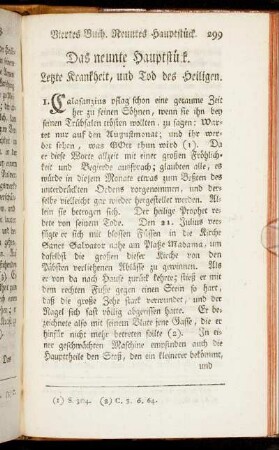 Viertes Buch. Neuntes Hauptstük. 299
Das neunte Hauptstük.
Letzte Krankheit, und Tod des Heiligen.
1. Calasanzius pflag schon eine geraume Zeit
her zu seinen Söhnen, wenn sie ihn bey
seinen Trübsalen trösten wollten, zu sagen: War
tet nur auf den Augustmonat; und ihr wer
det sehen, was GOtt thun wird (1). Da
er diese Worte allzeit mit einer großen Fröhlich
keit und Begierde aussprach; glaubten alle, es
würde in diesem Monate etwas zum Besten des
unterdrückten Ordens vorgenommen, und der
selbe vielleicht gar wieder hergestellet werden. Al
lein sie betrogen sich. Der heilige Prophet redet
von seinem Tode. Den 21. Julius ver
fügte er sich mit blossen Füssen in die Kirche
Sanct Salvators nahe am Platze Madama, um
daselbst die großen dieser Kirche von den
Päbsten verliehenen Ablässe zu gewinnen. Als
er von da nach Hause zurück kehrte; stieß er mit
dem rechten Fuße gegen einen Stein so hart,
daß die große Zehe stark verwundet, und der
Nagel sich fast völlig abgerissen hatte. Er be
zeichnete also mit seinem Blute jene Gasse, die er
hinfür nicht mehr betreten sollte (2). Zu ei
ner geschwächten Maschine empfinden auch die
Haupttheile den Stoß, den ein kleinerer bekömmt,
und
(1) S. 304. (2) C. 5. 6. 64.